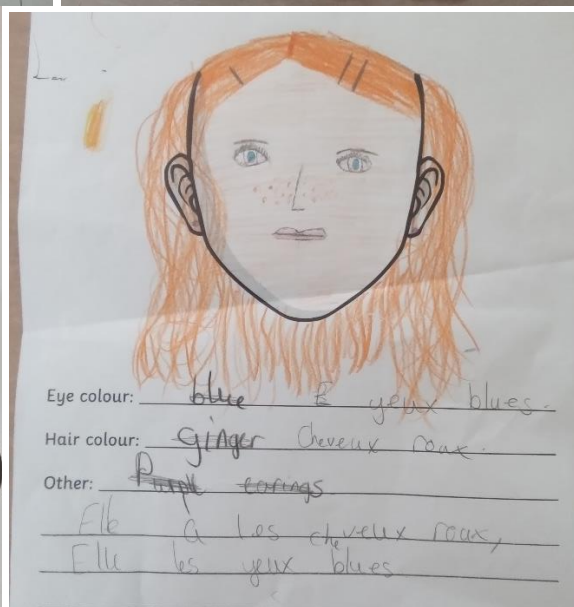 Eye colour: blue E yeux blues.
Hair colour: ginger Cheveux roux.
Other: earings
Elle a les cheveux roux,
Elle les yeux blues